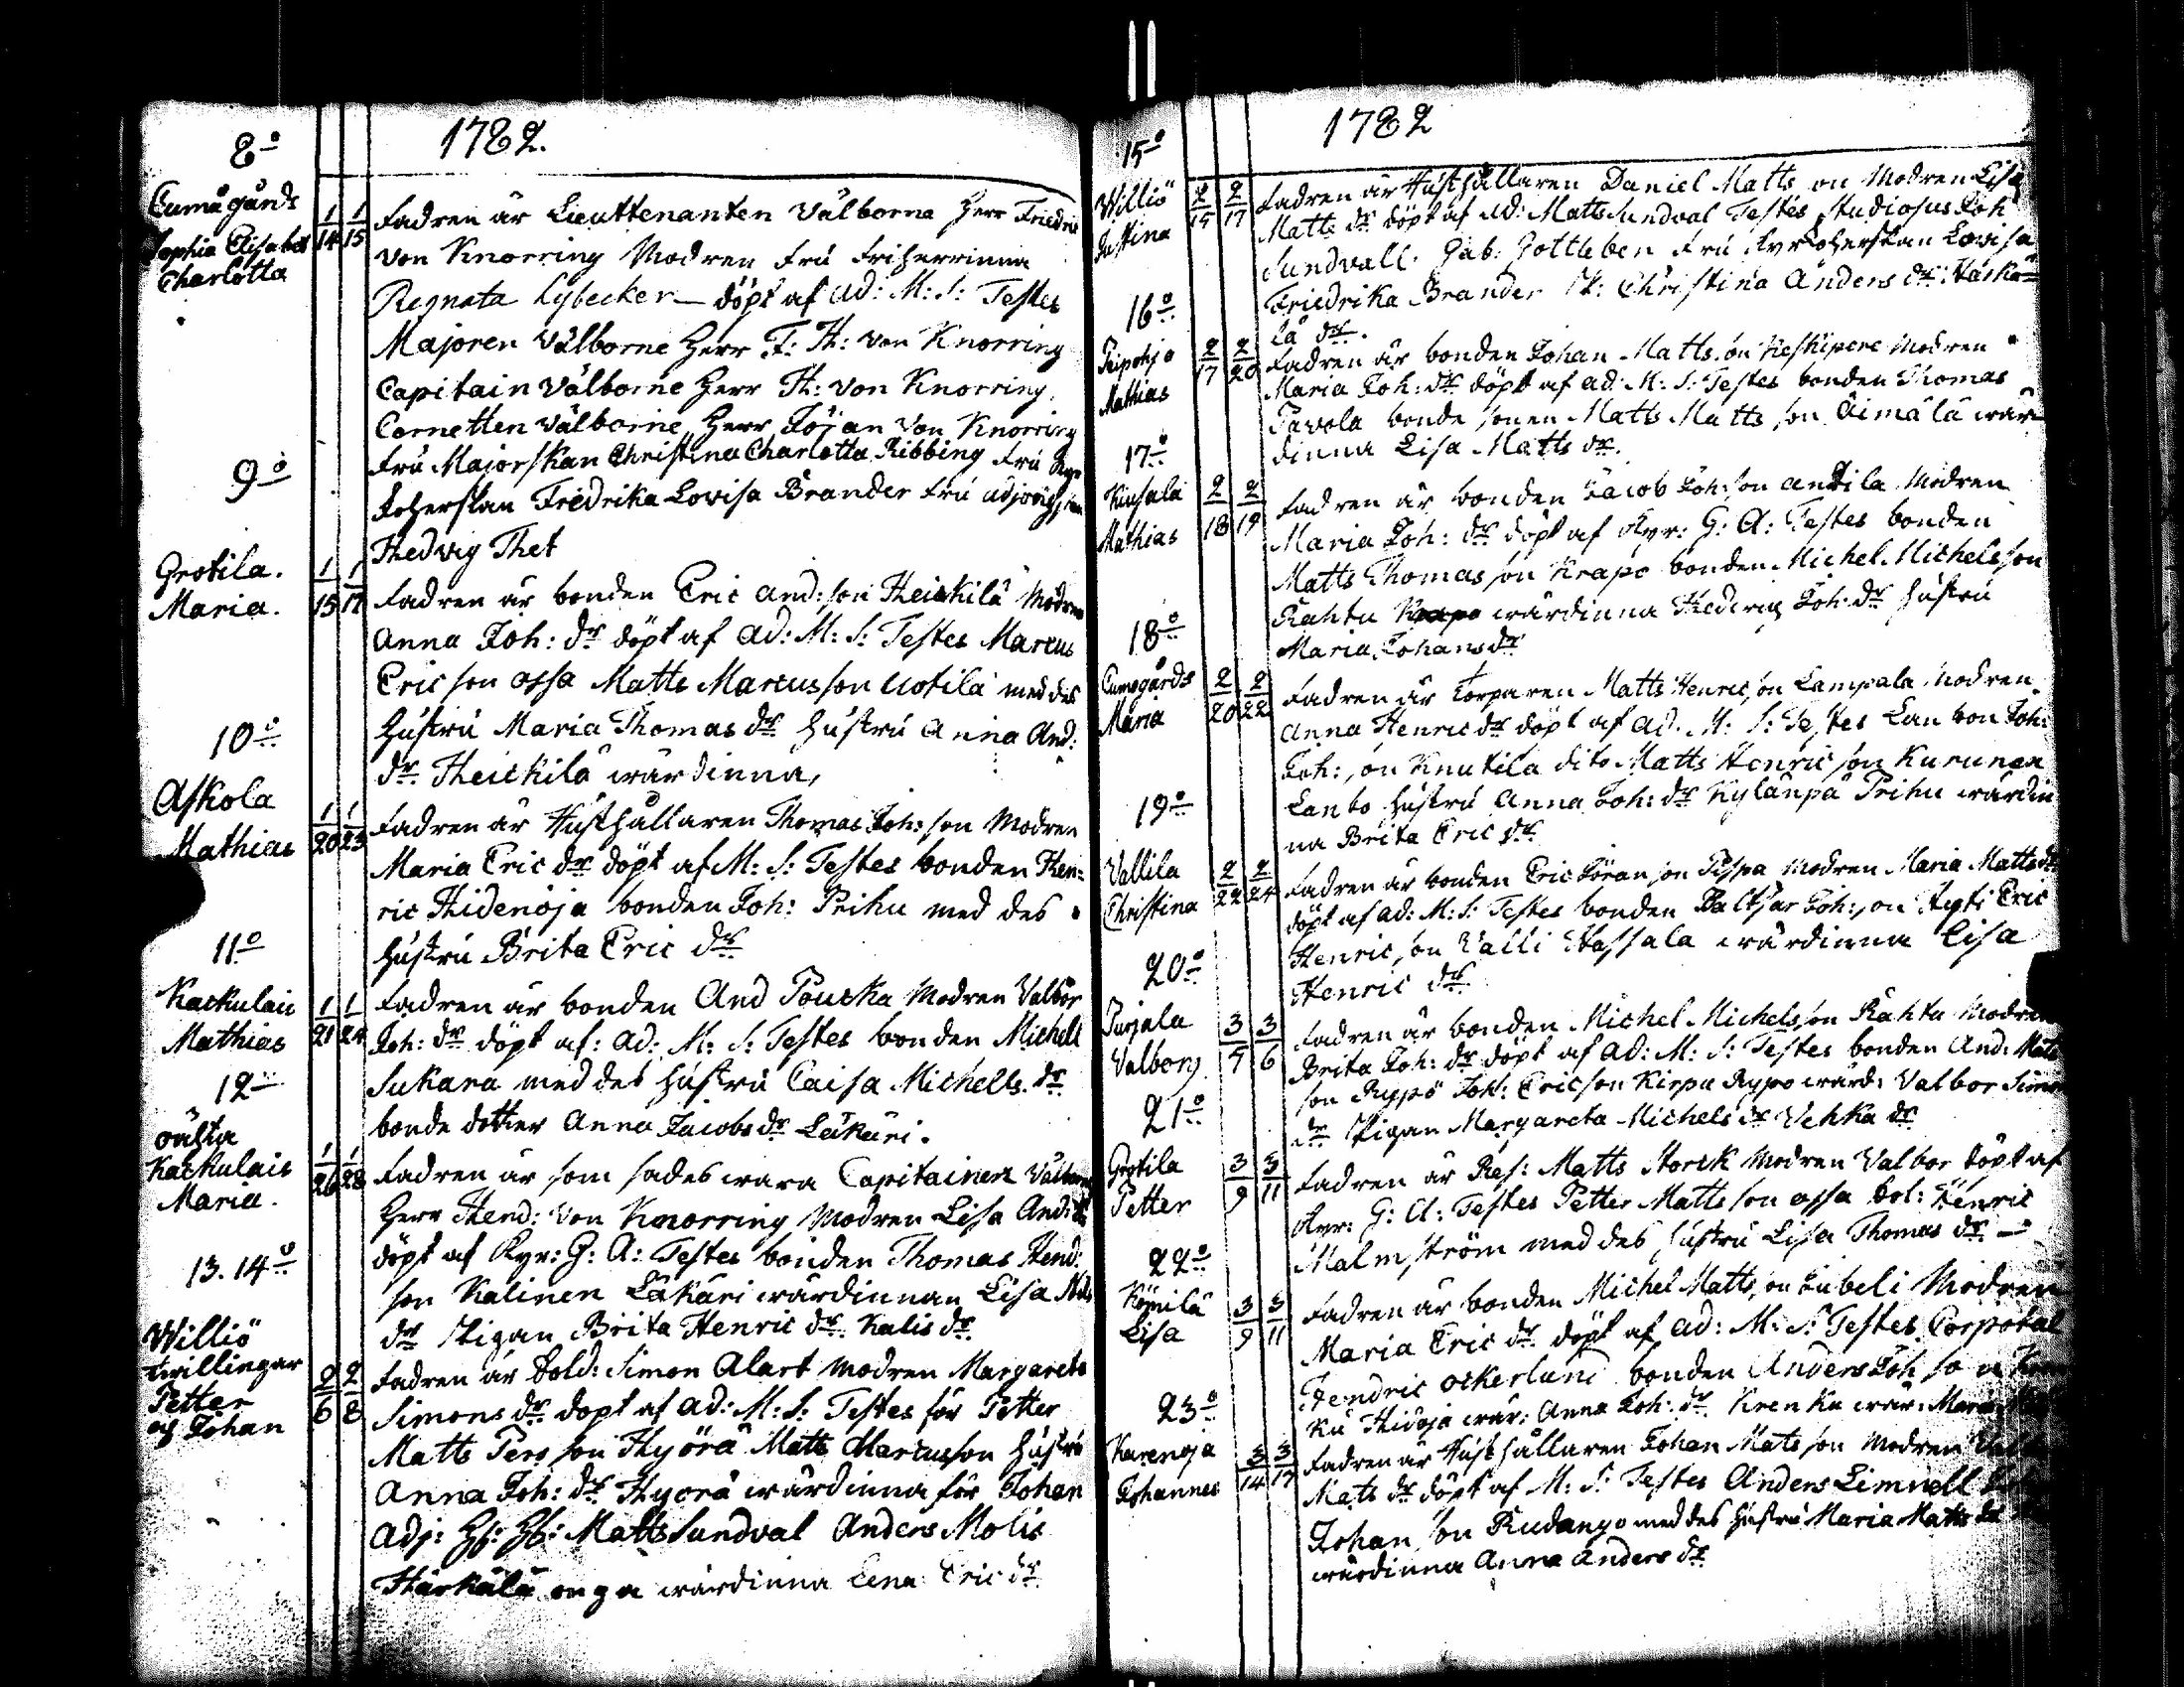 1782.
8o
Cumågårds
Sophia Elisabet
Charlotta
1/14 1/15
Fadren är Lieuttenanten Välborne Herr Friedric
von Knorring Modren Fru Friherrinna
Regnata Lybecker döpt af ad: M: S: Testes
Majoren Välborne Herr F: H: von Knorring
Capitain Välborne Herr H: von Knorring
Cornetten Välborne Herr Jöran von Knorring
Fru Majorskan Christina Charlotta Ribbing Fru Kyr
koherskan Fredrika Lovisa Brander Fru
Hedvig Thet
9o
Grotila.
Maria.
1/15 1/17
Fadren är bonden Eric And: son Heickilä Modren
Anna Joh: dr döpt af ad: M: S: Testes Marcus
Ericson ossa Matts Marcusson Uotila med des
hustru Maria Thomas dr hustru Anna And:
dr Heickilä wärdinna,
10o
Askola
Mathias
1/20 1/23
Fadren är Husthållaren Thomas Joh: son Modren
Maria Eric dr döpt af M: S: Testes bonden Hen=
ric Hidenoja bonden Joh: Prihu med des
hustru Brita Eric dr
11o
Kackulais
Mathias
1/21 1/24
Fadren är bonden And Pouska Modren Valbor
Joh: dr döpt af: ad: M: S: Testes bonden Michell
Sukara med des hustru Caisa Michells dr
bonde dotter Anna Jacobs dr Läkäri.
12
Kackulais
Maria.
1/26 1/28
Fadren är som sades wara Capitainen Välborne
Herr Hend: von Knorring Modren Lisa And: dr
döpt af Kyr: G: A: Testes bonden Thomas Hend:
son Kalinen Läkäri wärdinnan Lisa
dr Pigan Brita Henric dr Kalis dr
13. 14o
Williö
twillingar
Petter
och Johan
2/6 2/8
Fadren är Sold: Simon Alart Modren Margareta
Simons dr döpt af ad: M: S: Testes för Petter
Matts Persson Hyörä Matts Marcusson hustru
Anna Joh: dr Hyörä wärdinna för Johan
Adj: Matts Sundval Anders Molis
Härkälä wärdinna Lena Eric dr
1782
15o
Williö
Justina
2/15 2/17
Fadren är Husthållaren Daniel Mattson Modren Lisa
Matts dr döpt af ad: Matts Sundval Testes Studiosus Joh
Sundvall. Gab: Gottleben Fru Kyrkoherskan Lovisa
Friedrika Brander P: Christina Anders dr: Härkä=
lä dr.
16o
Peipohja
Mathias
2/17 2/20
Fadren är bonden Johan Mattson Keskipere Modren
Maria Joh: dr döpt af ad: M: S: Testes bonden Thomas
Pavola bonde sonen Matts Mattsson Äimälä wär
dinna Lisa Matts dr.
17o
Kiusala
Mathias
2/18 2/19
Fadren är bonden Jacob Joh: son Antila Modren
Maria Joh: dr döpt af Kyr: G: A: Testes bonden
Matts Thomasson Krapo bonden Michel Michelsson
Rahtu wärdinna Hedevig Joh: dr hustru
Maria Johans dr
18o
Cumogårds
Maria
2/20 2/22
Fadren är Torparen Matts Henricson Lampala Modren
Anna Henric dr döpt af ad: M: S: Testes Lanbon Joh:
Joh: son Knutila dito Matts Henricson Kurunen
Lanbo hustru Anna Joh: dr Kylänpä Prihu wärdin
na Brita Eric dr.
19o
Vallila
Christina
2/22 2/24
Fadren är bonden Eric Jöranson Pispa Modren Maria Matts dr
döpt af ad: M: S: Testes bonden Baltsar Joh: son Eric
Henricson Valli Hassala wärdinna Lisa
Henric dr
20o
Purjala
Valborg
3/5 3/6
Fadren är bonden Michel Michelsson Rahtu Modren
Brita Joh: dr döpt af ad: M: S: Testes bonden And: Mats
son Rypö Joh: Ericson Kirpu Rypo wärd: Valbor Simon
dr Pigan Margareta Michels dr Vehka dr
21o
Grotila
Petter
3/9 3/11
Fadren är Res: Matts Storck Modren Valbor döpt af
Kyr: G: A: Testes Petter Mattsson ossa Sol: Henric
Malmström med des hustru Lisa Thomas dr
22o
Kömilä
Lisa
3/9 3/11
Fadren är bonden Michel Mattson Jubeli Modren
Maria Eric dr döpt af ad: M: S: Testes Corporal
Hendric Ockerlund bonden Anders Joh son
Ku Hidoja wär: Anna Joh: dr Krenku wär: Maria
23o
Karenoja
Johannes
3/14 3/17
Fadren är Husthållaren Johan Matsson Modren
Mats dr döpt af M: S: Testes Anders Limnell
Johanson Rudanyo med des hustru Maria Matts dr
wärdinna Anna Anders dr